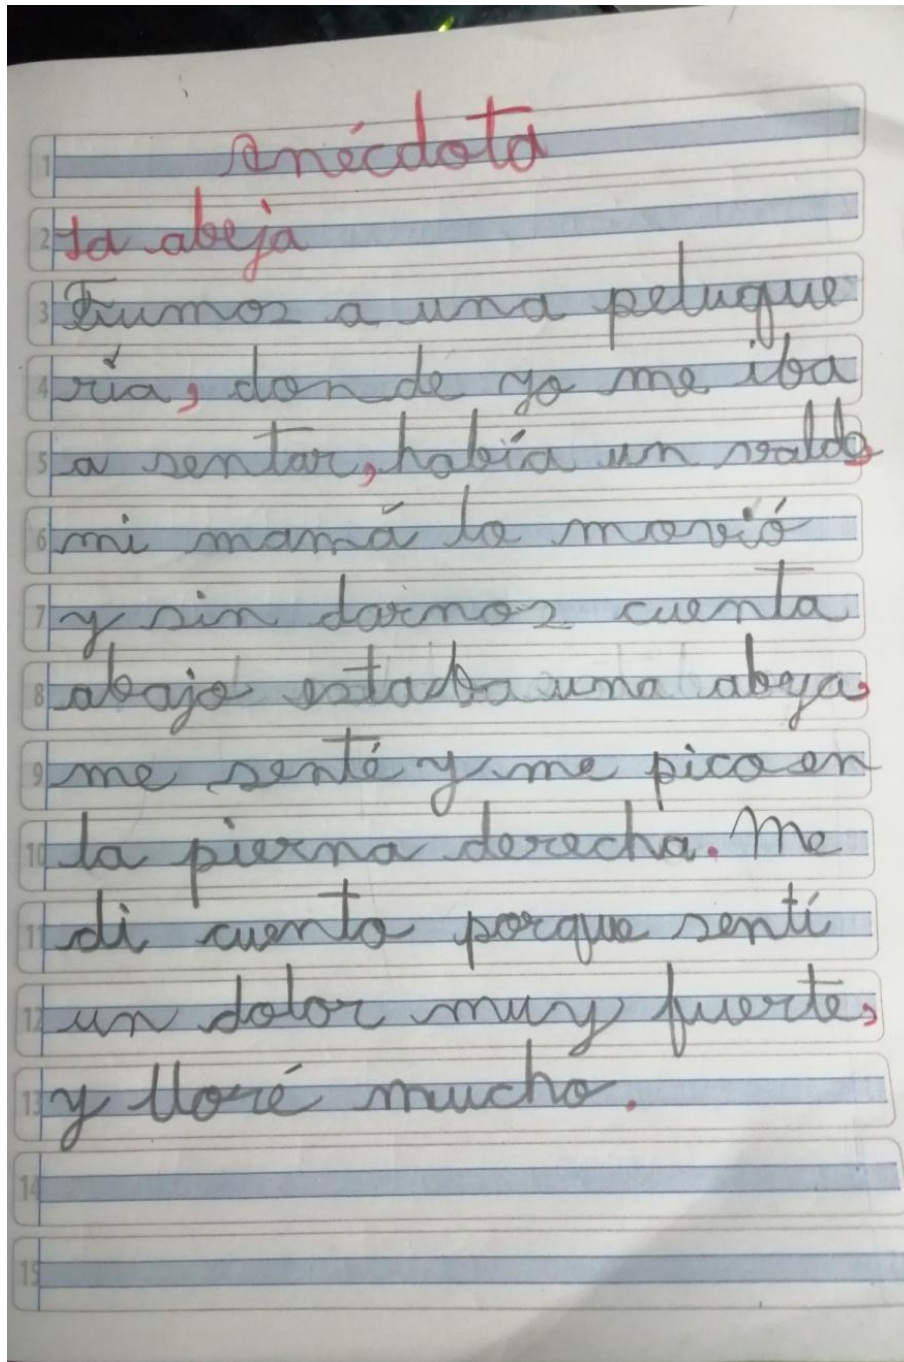 Anécdota
La abeja
Fuimos a una peluque
ría, donde yo me iba
a sentar, había un valde,
mi mamá lo movió
y sin darnos cuenta
abajo estaba una abeja,
me senté y me pico en
la pierna derecha. Me
di cuenta porque sentí
un dolor muy fuerte,
y lloré mucho.